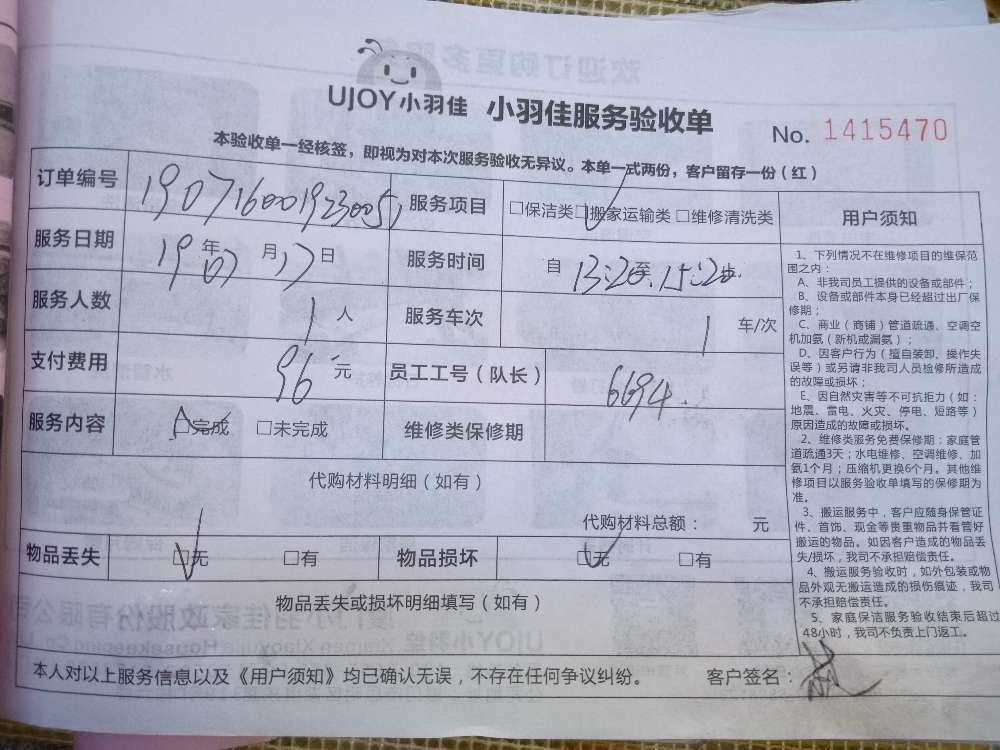 UJOY小羽佳 小羽佳服务验收单
No. 1415470
本验收单一经核签，即视为对本次服务验收无异议。本单一式两份，客户留存一份（红）
订单编号 服务项目 □保洁类□搬家运输类 □维修清洗类
服务日期 19年07月17日 服务时间 自 13:20至 15:20止
服务人数 1人 服务车次 1 车/次
支付费用 96元 员工工号（队长） 6694
服务内容 □完成 □未完成 维修类保修期
代购材料明细（如有）
代购材料总额： 元
物品丢失 □无 □有 物品损坏 □无 □有
物品丢失或损坏明细填写（如有）
本人对以上服务信息以及《用户须知》均已确认无误，不存在任何争议纠纷。 客户签名：
用户须知
1、下列情况不在维修项目的维保范
围之内：
A、非我司员工提供的设备或部件；
B、设备或部件本身已经超过出厂保
修期；
C、商业（商铺）管道疏通、空调空
机加氨（新机或漏氨）；
D、因客户行为（擅自装卸、操作失
误等）或另请非我司人员检修所造成
的故障或损坏；
E、因自然灾害等不可抗拒力（如：
地震、雷电、火灾、停电、短路等）
原因造成的故障或损坏。
2、维修类服务免费保修期：家庭管
道疏通3天；水电维修、空调维修、加
氨1个月；压缩机更换6个月。其他维
修项目以服务验收单填写的保修期为
准。
3、搬运服务中，客户应随身保管证
件、首饰、现金等贵重物品并看管好
搬运的物品。如因客户造成的物品丢
失/损坏，我司不承担赔偿责任。
4、搬运服务验收时，如外包装或物
品外观无搬运造成的损伤痕迹，我司
不承担赔偿责任。
5、家庭保洁服务验收结束后超过
48小时，我司不负责上门返工。